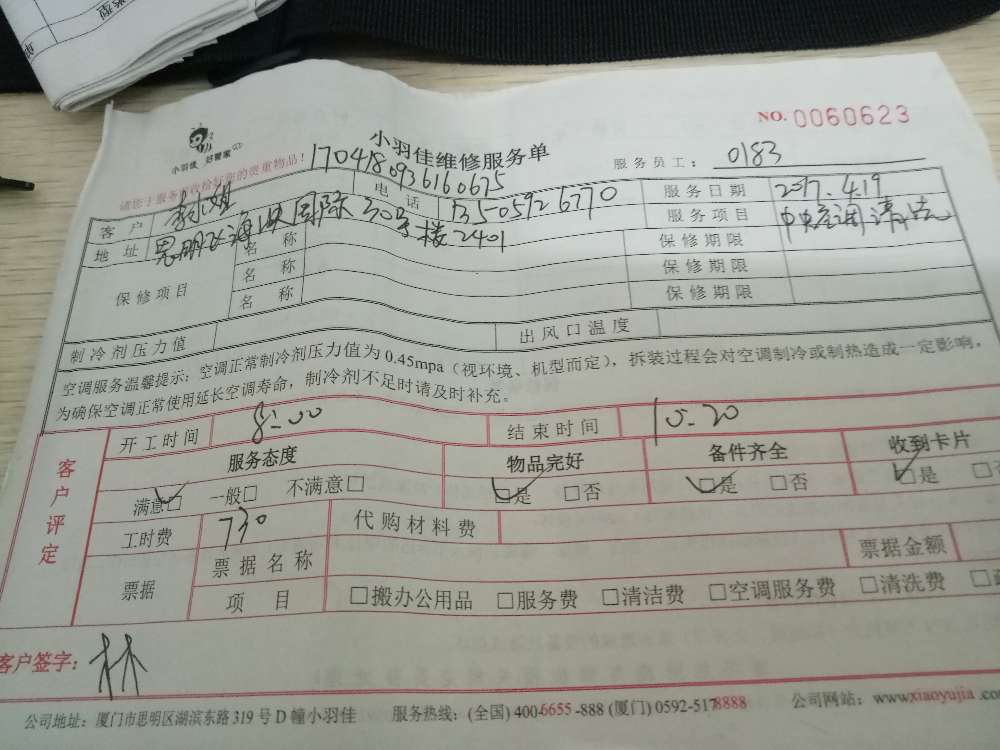 NO. 0060623
小羽佳 好管家
小羽佳维修服务单
服务员工： 0183
请您于服务前收拾好您的贵重物品！
1704180936160675
客户 电话 13505926770 服务日期 2017.4.19
地址 思明区海峡国际30号楼2401 服务项目 中央空调清洗
保修项目 名称 保修期限
名称 保修期限
名称 保修期限
制冷剂压力值 出风口温度
空调服务温馨提示：空调正常制冷剂压力值为0.45mpa（视环境、机型而定），拆装过程会对空调制冷或制热造成一定影响。
为确保空调正常使用延长空调寿命，制冷剂不足时请及时补充。
客户评定
开工时间 8:00 结束时间 10:20
服务态度 物品完好 备件齐全 收到卡片
满意□ 一般□ 不满意□ □是 □否 □是 □否 □是
工时费 730 代购材料费
票据 票据名称 票据金额
项目 □搬办公用品 □服务费 □清洁费 □空调服务费 □清洗费
客户签字： 林
公司地址：厦门市思明区湖滨东路319号D幢小羽佳 服务热线：(全国) 400-6655-888 (厦门) 0592-5178888 公司网站：www.xiaoyujia.co